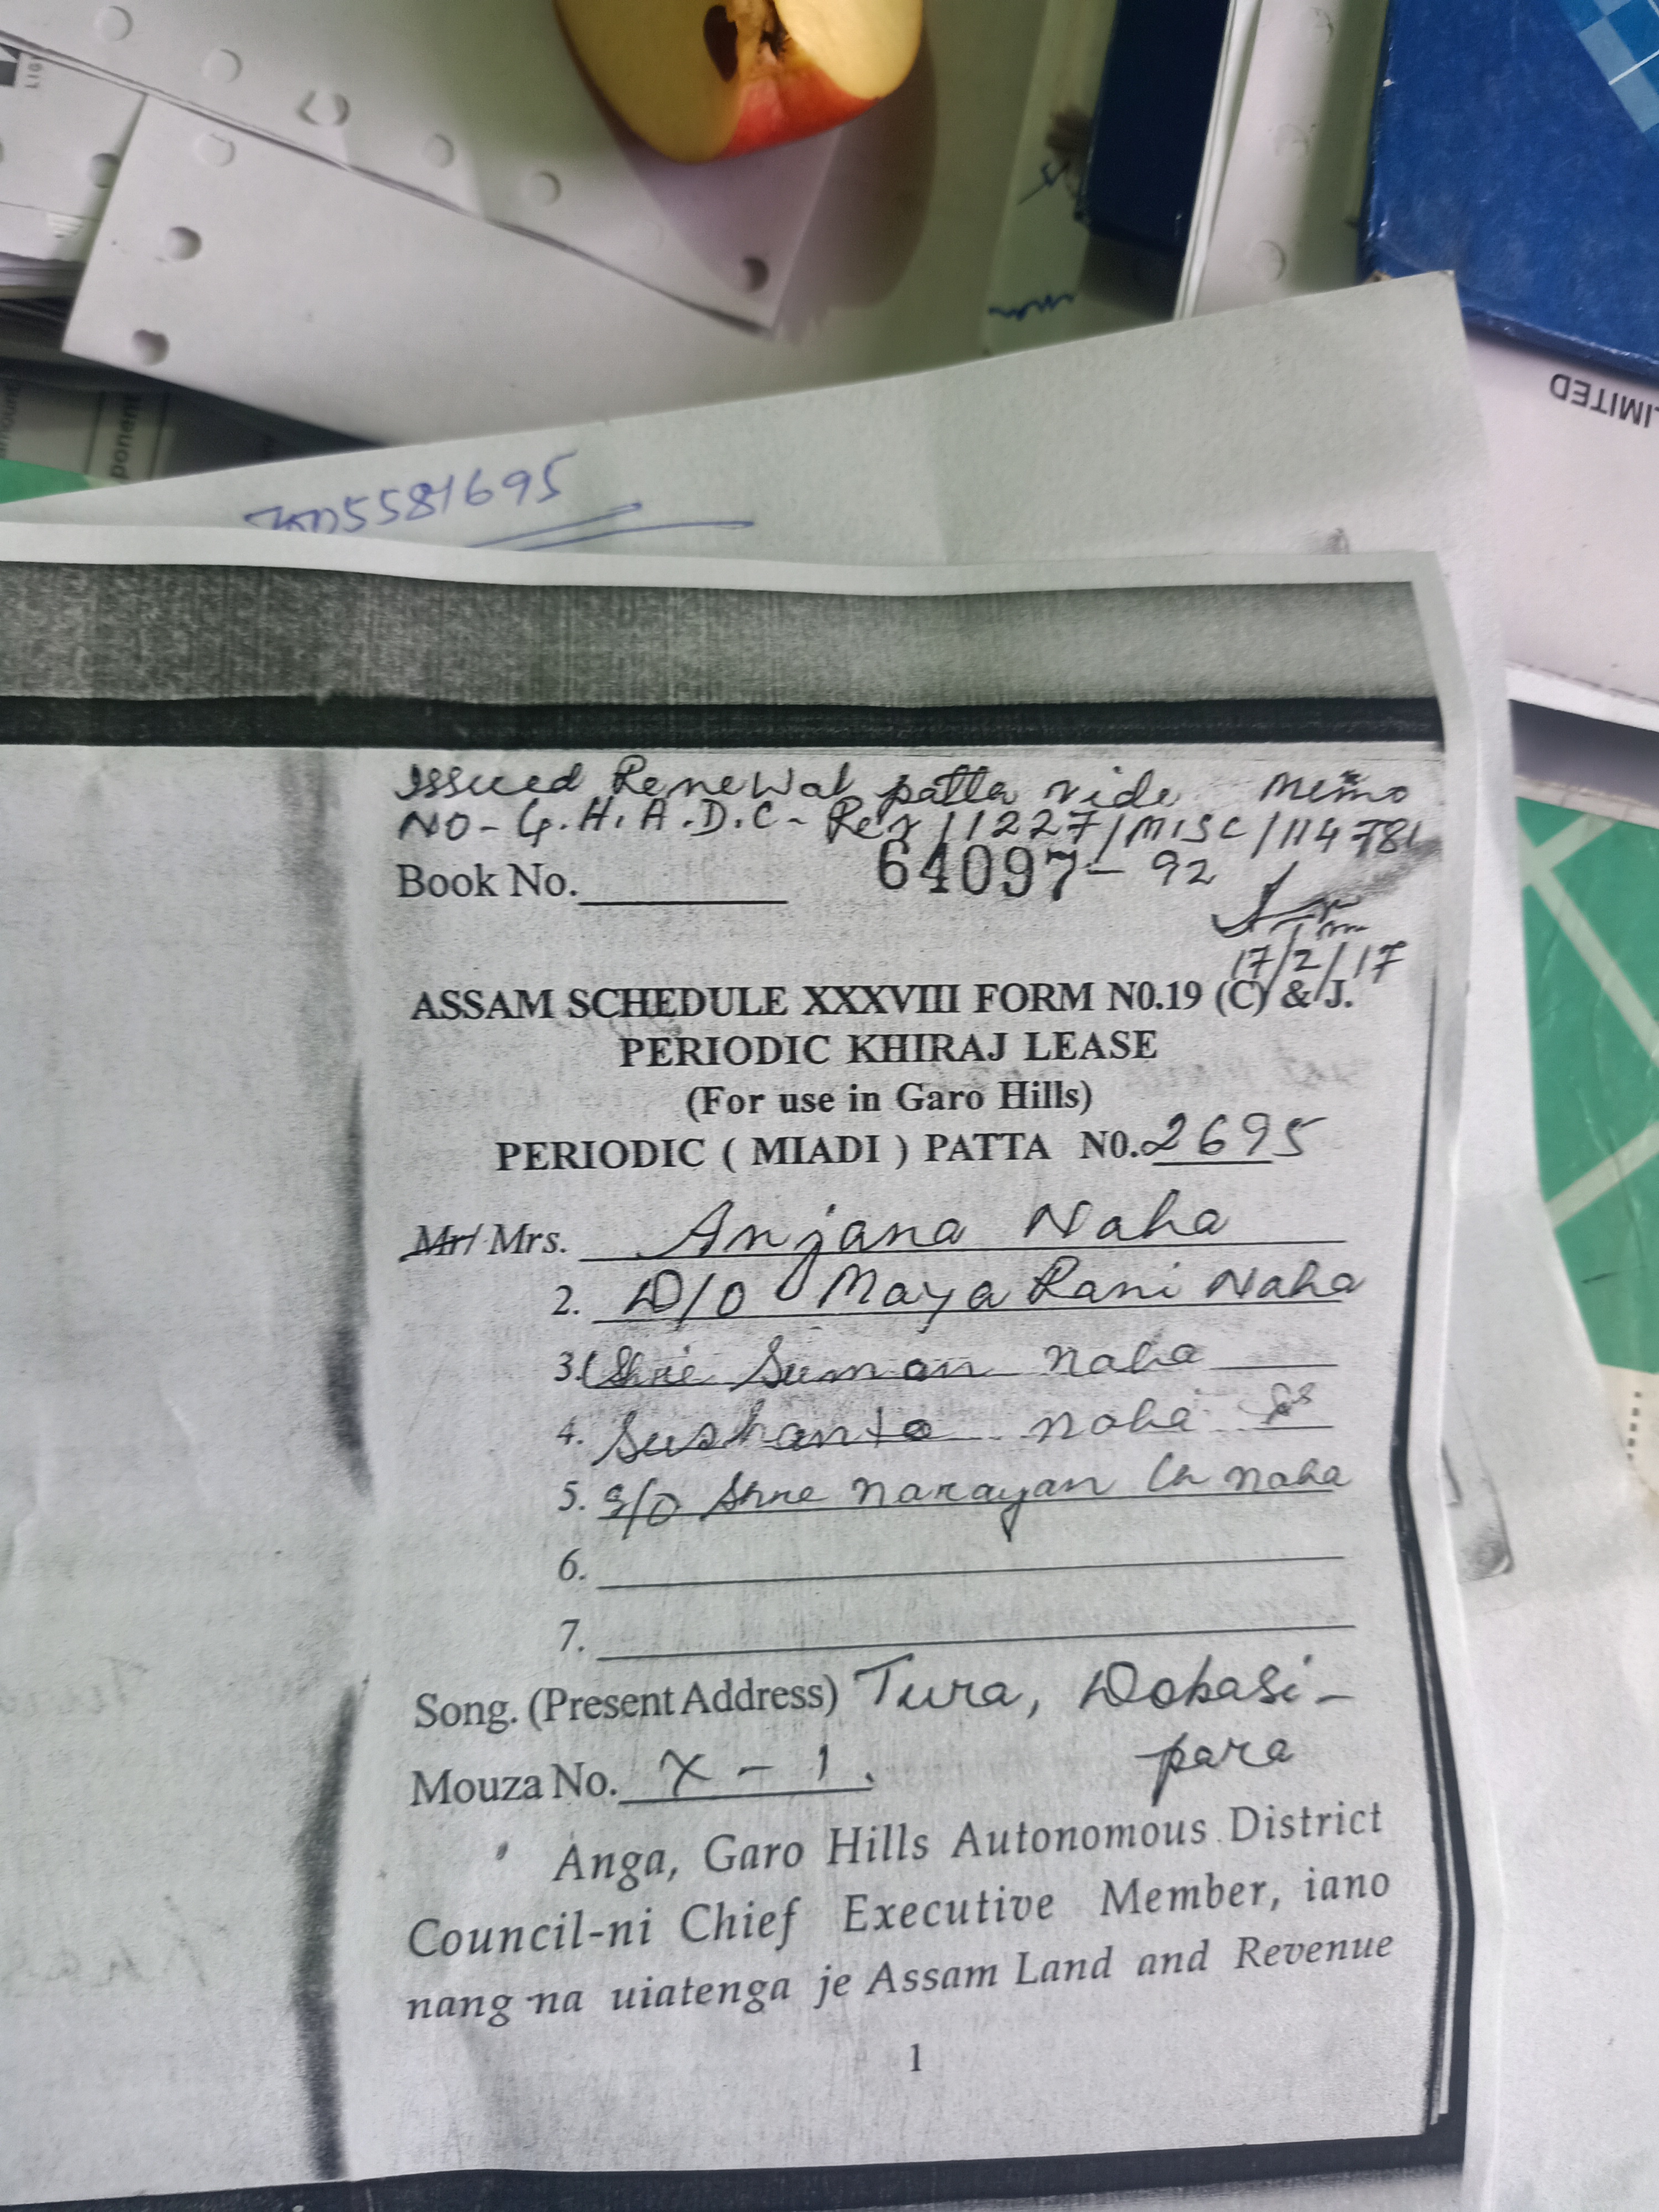 LIMITED
ponent
5581695
Issued Renewal patta vide Memo
NO-G.H.A.D.C- Rev/1227/MISC/114781
Book No. 64097-92
17/2/17
ASSAM SCHEDULE XXXVIII FORM N0.19 (C) & J.
PERIODIC KHIRAJ LEASE
(For use in Garo Hills)
PERIODIC ( MIADI ) PATTA N0. 2695
Mr/ Mrs. Anjana Naha
2. D/O Maya Rani Naha
3. (Shrie Suman Naha
4. Sushanto Naha
5. S/O Shre Narayan Ch Naha
6.
7.
Song. (Present Address) Tura, Dobasi-
para
Mouza No. X - 1.
Anga, Garo Hills Autonomous District
Council-ni Chief Executive Member, iano
nang na uiatenga je Assam Land and Revenue
1